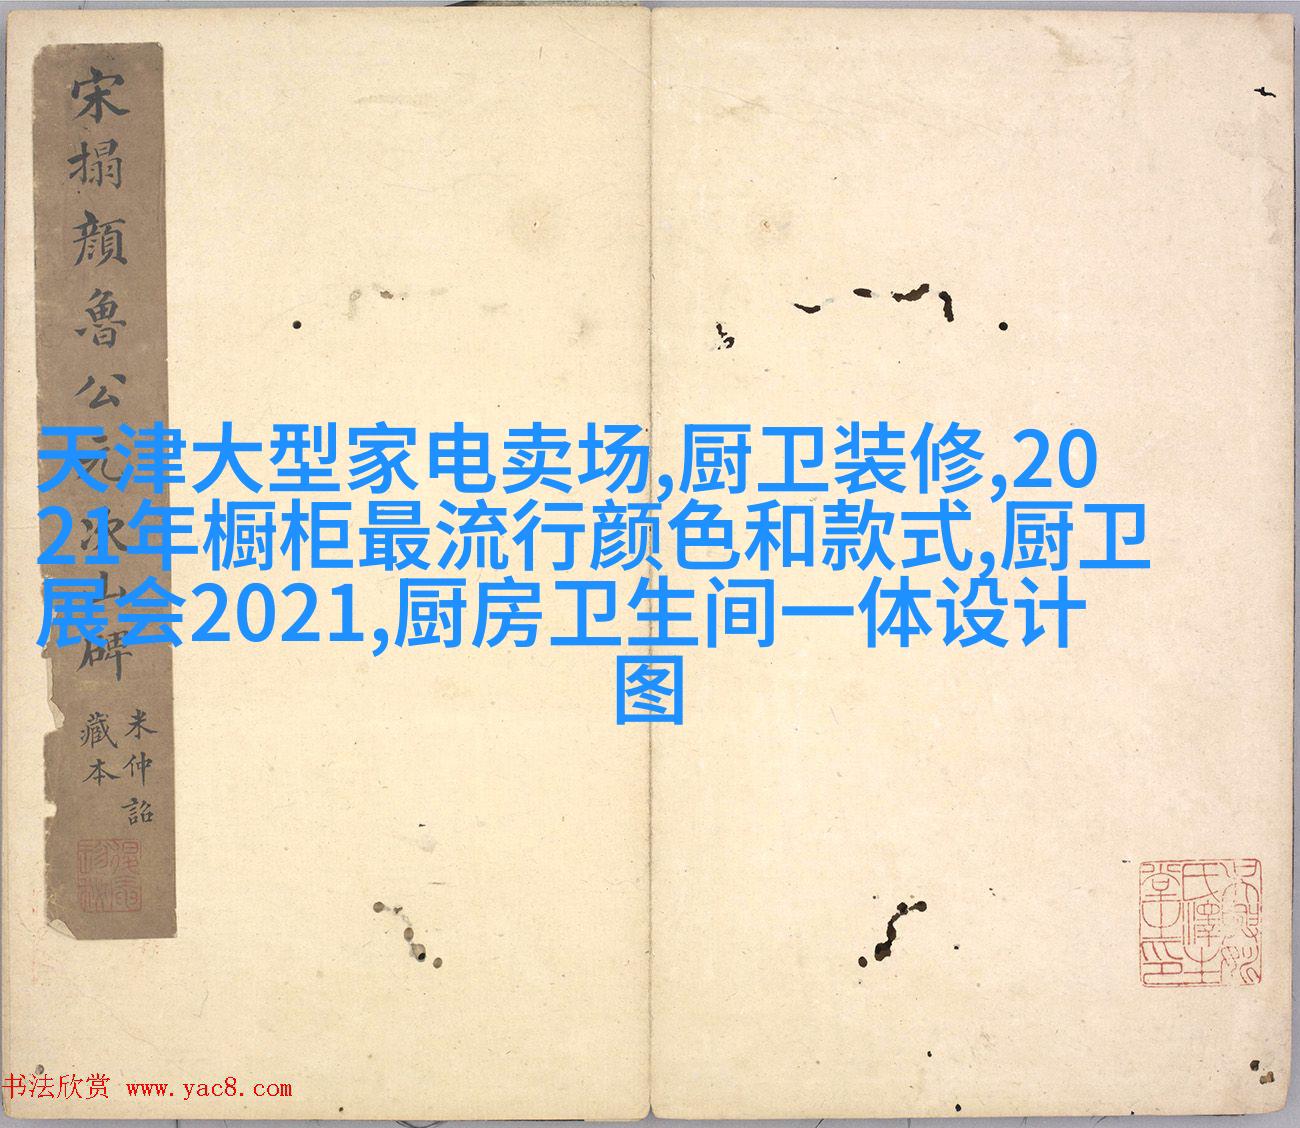 宋搨顔魯公元次山碑
米仲詔
藏本
天津大型家电卖场,厨卫装修,20
21年橱柜最流行颜色和款式,厨卫
展会2021,厨房卫生间一体设计
图
书法欣赏 www.yac8.com